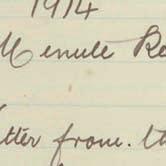 1914
Menule Re
tter from. th